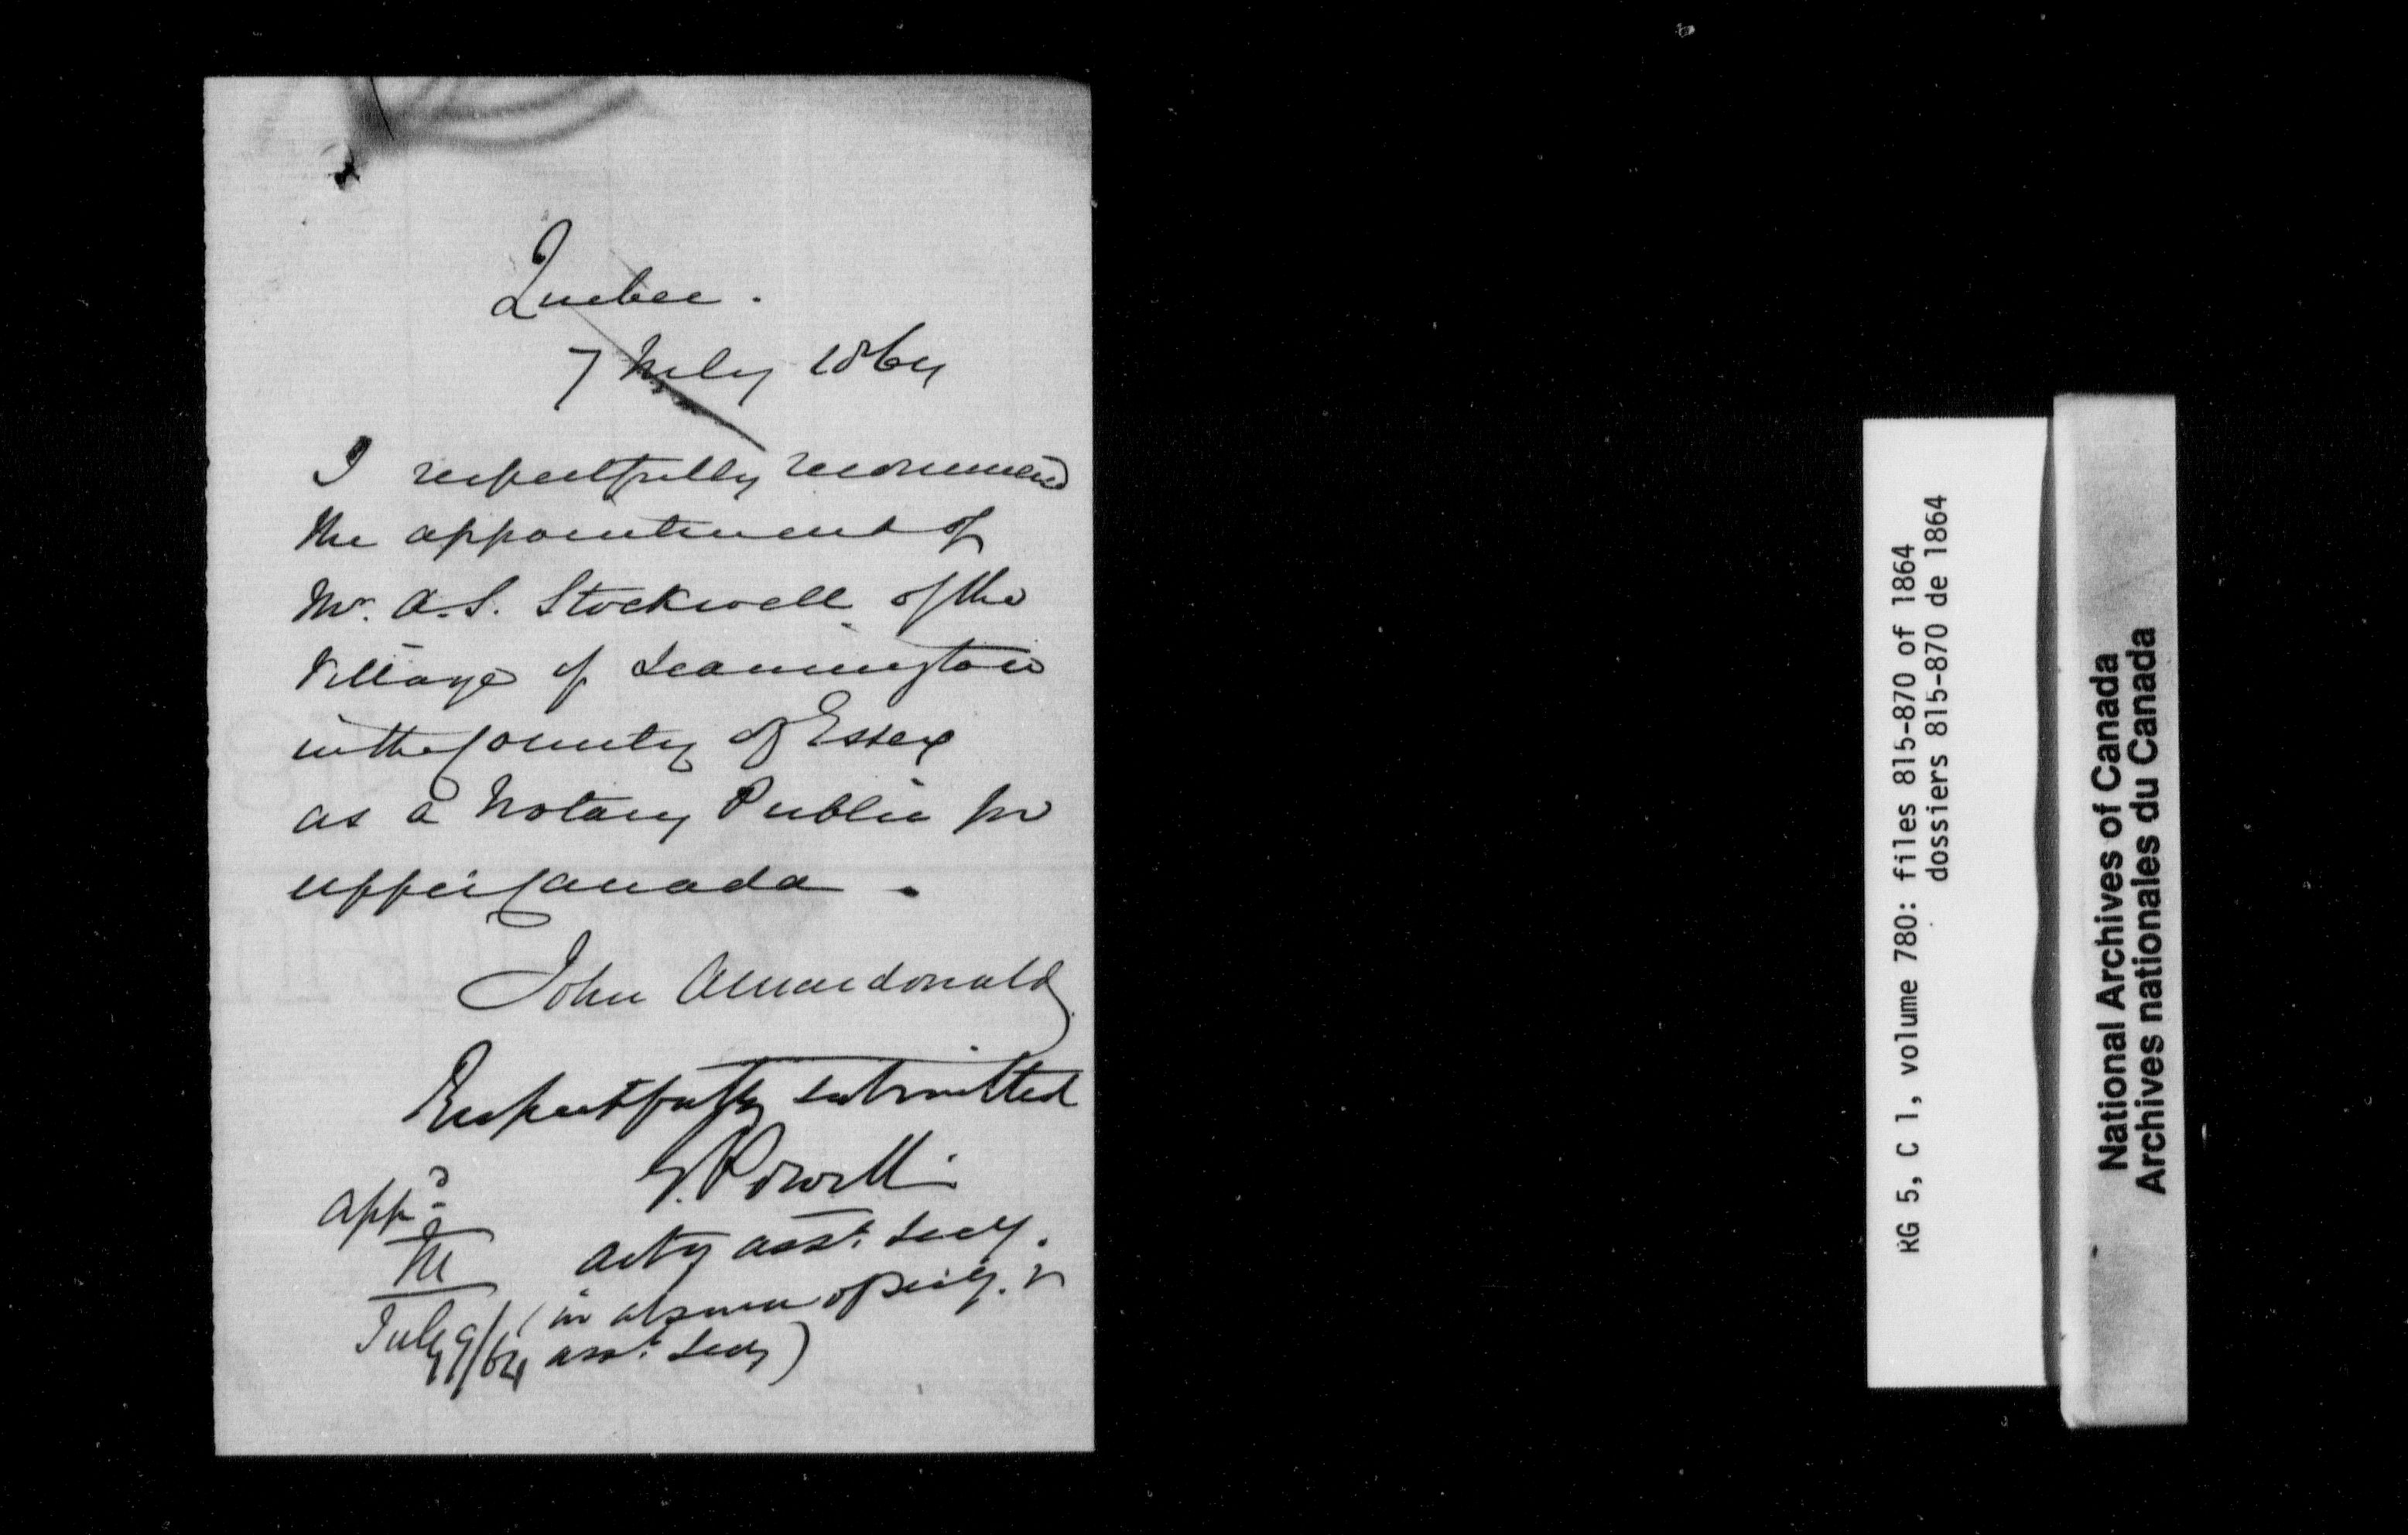 Quebec.
7 July 1864
I respectfully recommend
the appointment of
Mr. A. S. Stockwell of the
Village of Leamington
in the County of Essex
as a Notary Public for
Upper Canada.
John A Macdonald
Respectfully submitted
G. Powell
Actg Asst. Secy.
(in absence of Secy. &
Asst. Secy)
Appd.
M
July 9/64
RG 5, C 1, volume 780: files 815-870 of 1864
dossiers 815-870 de 1864
National Archives of Canada
Archives nationales du Canada